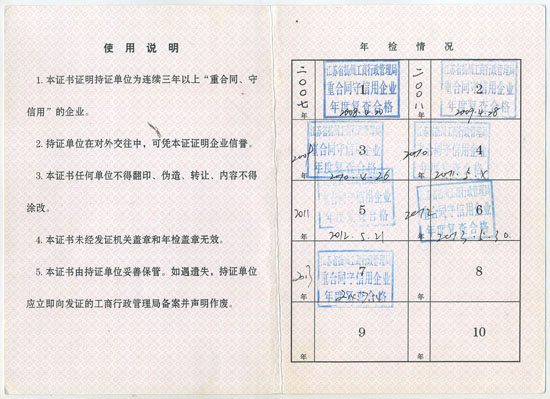 使用说明
1. 本证书证明持证单位为连续三年以上“重合同、守
信用”的企业。
2. 持证单位在对外交往中，可凭本证证明企业信誉。
3. 本证书任何单位不得翻印、伪造、转让、内容不得
涂改。
4. 本证书未经发证机关盖章和年检盖章无效。
5. 本证书由持证单位妥善保管。如遇遗失，持证单位
应立即向发证的工商行政管理局备案并声明作废。
年检情况
二〇〇七年
1
重合同守信用企业
年度复查合格
2008.4.20
二〇〇八年
2
重合同守信用企业
年度复查合格
2009.4.28
2009年
3
重合同守信用企业
年度复查合格
2010.4.26
2010年
4
重合同守信用企业
年度复查合格
2011年
5
重合同守信用企业
年度复查合格
2012.5.21
2012年
6
重合同守信用企业
年度复查合格
2013年
7
重合同守信用企业
年度复查合格
年
8
年
9
年
10